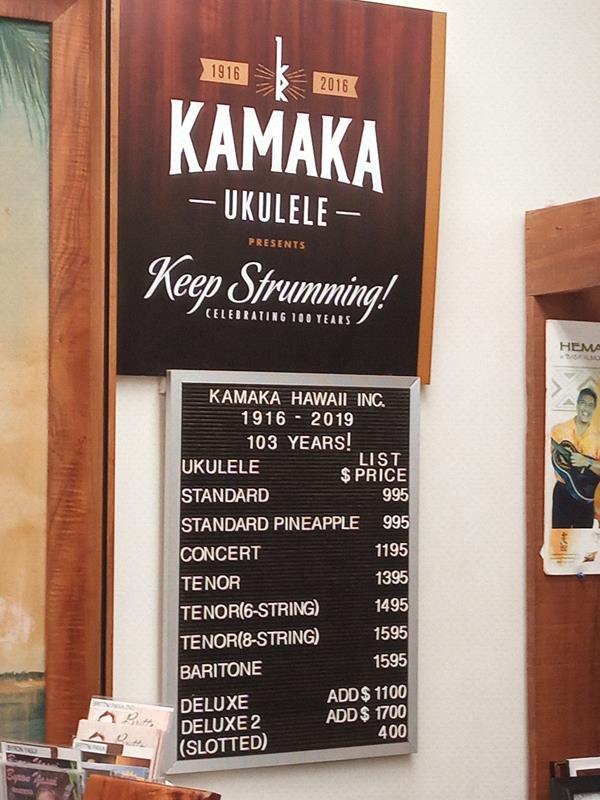 1916 2016
KAMAKA
UKULELE
PRESENTS
Keep Strumming!
CELEBRATING 100 YEARS
KAMAKA HAWAII INC.
1916 - 2019
103 YEARS!
UKULELE LIST
$ PRICE
STANDARD 995
STANDARD PINEAPPLE 995
CONCERT 1195
TENOR 1395
TENOR(6-STRING) 1495
TENOR(8-STRING) 1595
BARITONE 1595
DELUXE ADD $ 1100
DELUXE 2 ADD $ 1700
(SLOTTED) 400
HEMA
Byron Yasui